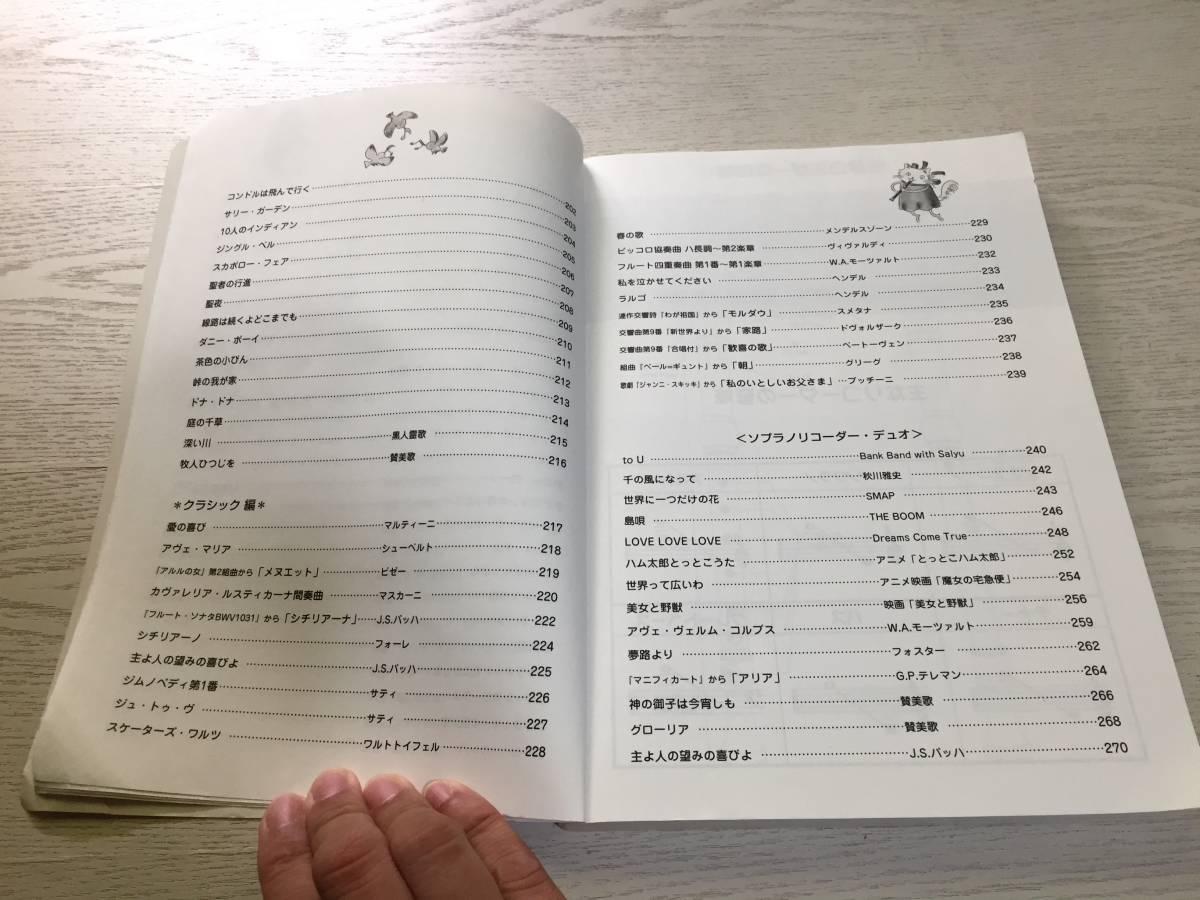 コンドルは飛んで行く 202
サリー・ガーデン 203
10人のインディアン 204
ジングル・ベル 205
スカボロー・フェア 206
聖者の行進 207
聖夜 208
線路は続くよどこまでも 209
ダニー・ボーイ 210
茶色の小びん 211
峠の我が家 212
ドナ・ドナ 213
庭の千草 214
深い川 黒人霊歌 215
牧人ひつじを 賛美歌 216
＊クラシック 編＊
愛の喜び マルティーニ 217
アヴェ・マリア シューベルト 218
『アルルの女』第2組曲から「メヌエット」 ビゼー 219
カヴァレリア・ルスティカーナ間奏曲 マスカーニ 220
『フルート・ソナタBWV1031』から「シチリアーナ」 J.S.バッハ 222
シチリアーノ フォーレ 224
主よ人の望みの喜びよ J.S.バッハ 225
ジムノペディ第1番 サティ 226
ジュ・トゥ・ヴ サティ 227
スケーターズ・ワルツ ワルトトイフェル 228
春の歌 メンデルスゾーン 229
ピッコロ協奏曲 ハ長調〜第2楽章 ヴィヴァルディ 230
フルート四重奏曲 第1番〜第1楽章 W.A.モーツァルト 232
私を泣かせてください ヘンデル 233
ラルゴ ヘンデル 234
連作交響詩『わが祖国』から「モルダウ」 スメタナ 235
交響曲第9番『新世界より』から「家路」 ドヴォルザーク 236
交響曲第9番『合唱付』から「歓喜の歌」 ベートーヴェン 237
組曲『ペール=ギュント』から「朝」 グリーグ 238
歌劇『ジャンニ・スキッキ』から「私のいとしいお父さま」 プッチーニ 239
＜ソプラノリコーダー・デュオ＞
to U Bank Band with Salyu 240
千の風になって 秋川雅史 242
世界に一つだけの花 SMAP 243
島唄 THE BOOM 246
LOVE LOVE LOVE Dreams Come True 248
ハム太郎とっとこうた アニメ「とっとこハム太郎」 252
世界って広いわ アニメ映画「魔女の宅急便」 254
美女と野獣 映画「美女と野獣」 256
アヴェ・ヴェルム・コルプス W.A.モーツァルト 259
夢路より フォスター 262
『マニフィカート』から「アリア」 G.P.テレマン 264
神の御子は今宵しも 賛美歌 266
グローリア 賛美歌 268
主よ人の望みの喜びよ J.S.バッハ 270